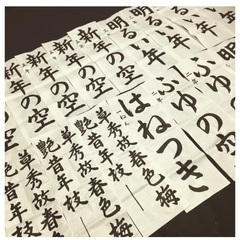 明るい年
明るい年
新年の空
新年の空
新年の空
ふゆの
ふゆの
はねつき
草秀故春色梅
艶昔年枝
草秀故春色梅
艶昔年枝